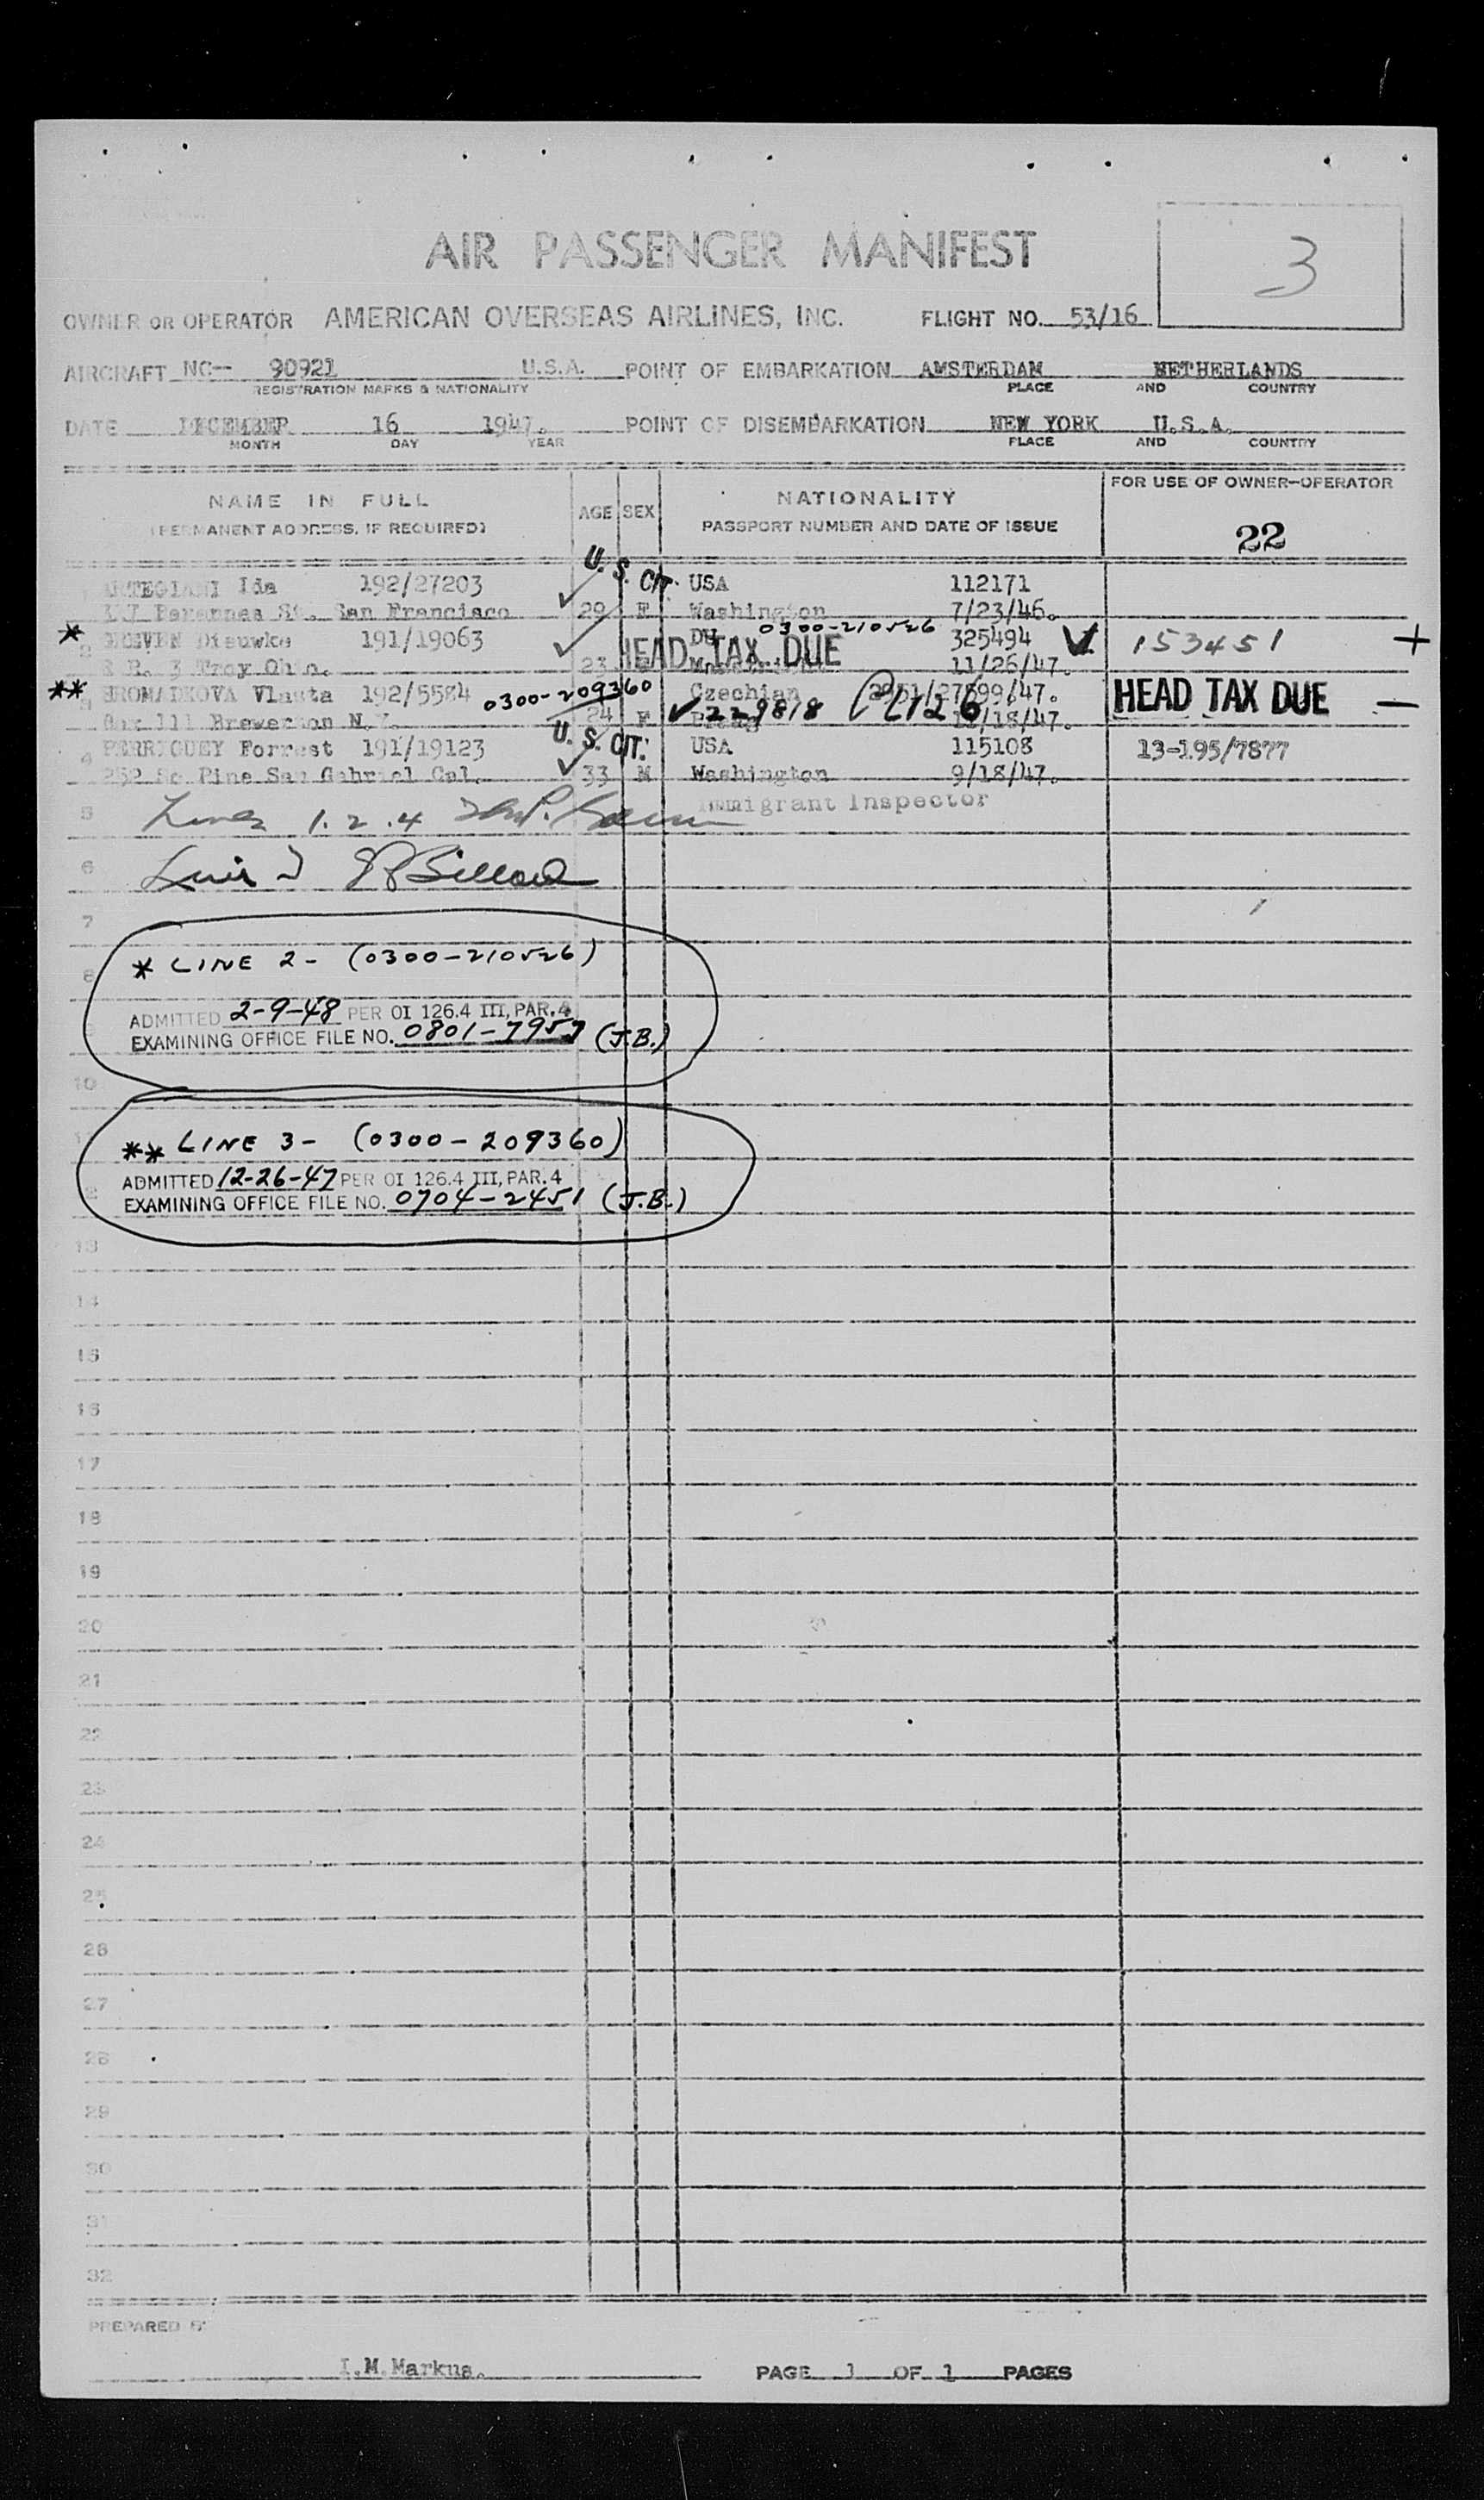 3
AIR PASSENGER MANIFEST
OWNER OR OPERATOR AMERICAN OVERSEAS AIRLINES, INC. FLIGHT NO. 53/16
AIRCRAFT NC-- 90921 U.S.A. POINT OF EMBARKATION AMSTERDAM NETHERLANDS
REGISTRATION MARKS & NATIONALITY PLACE AND COUNTRY
DATE DECEMBER 16 1947. POINT OF DISEMBARKATION NEW YORK U.S.A.
MONTH DAY YEAR PLACE AND COUNTRY
NAME IN FULL AGE SEX NATIONALITY FOR USE OF OWNER-OPERATOR
(PERMANENT ADDRESS, IF REQUIRED) PASSPORT NUMBER AND DATE OF ISSUE
22
ARTEGIANI Ida 192/27203 U. S. CIT. USA 112171
St. San Francisco 29 F Washington 7/23/46.
* 2 Dieuwke 191/19063 0300-210526 325494 153451 +
R R. 3 Troy Ohio. 23 HEAD TAX DUE 11/26/47.
** 3 HROMADKOVA Vlasta 192/5584 0300-209360 Czechian /47. HEAD TAX DUE —
Box 111 Brewerton N.Y. 24 F 229818 /18/47.
4 PERRIGUEY Forrest 191/19123 U. S. CIT. USA 115108 13-195/7877
252 So Pine San Gabriel Cal. 33 M Washington 9/18/47.
5 Lines 1. 2. 4 Immigrant Inspector
6
7
8 * LINE 2 - (0300-210526)
9 ADMITTED 2-9-48 PER OI 126.4 III, PAR. 4
EXAMINING OFFICE FILE NO. 0801-7957 (J.B.)
10
11 ** LINE 3 - (0300-209360)
12 ADMITTED 12-26-47 PER OI 126.4 III, PAR. 4
EXAMINING OFFICE FILE NO. 0704-2451 (J.B.)
13
14
15
16
17
18
19
20
21
22
23
24
25
26
27
28
29
30
31
32
PREPARED BY
I.M.Markus. PAGE 1 OF 1 PAGES